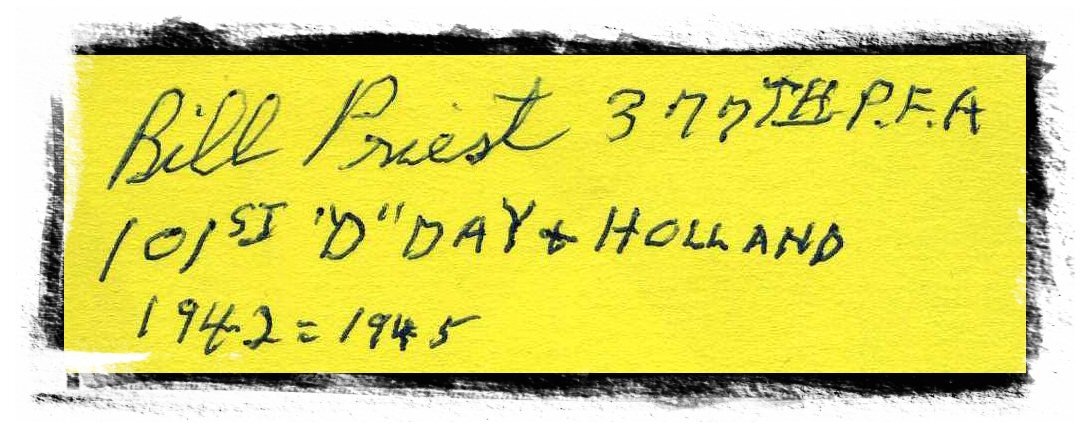 Bill Priest 377TH P.F.A
101ST "D" DAY & HOLLAND
1942=1945